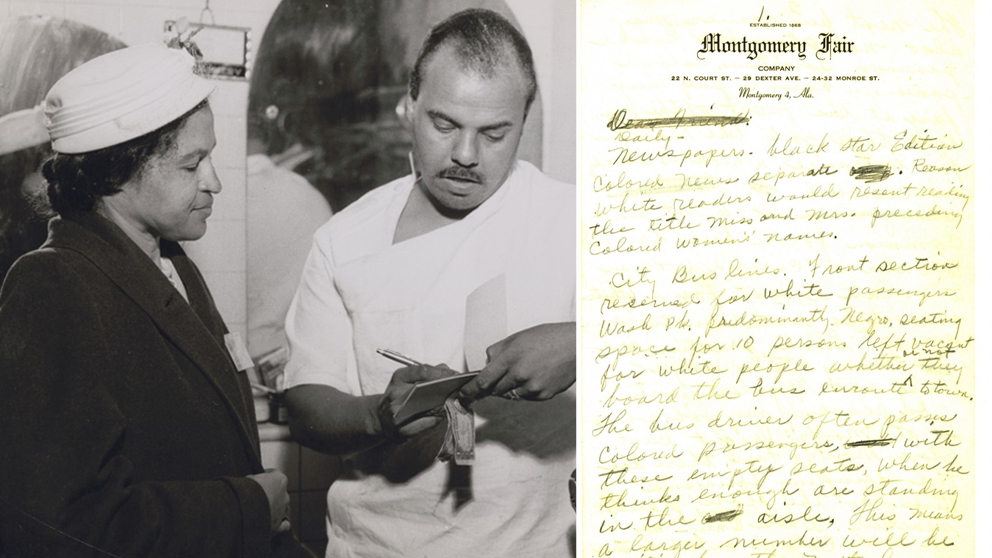 1.
ESTABLISHED 1868
Montgomery Fair
COMPANY
22 N. COURT ST. — 29 DEXTER AVE. — 24-32 MONROE ST.
Montgomery 4, Ala.
Dear Friend:
Daily
Newspapers. black star Edition
Colored News separate. Reason
white readers would resent reading
the title Miss and Mrs. preceding
Colored Women's names.
City Bus lines. Front section
reserved for white passengers
Wash Pk. predominantly Negro, seating
space for 10 persons left vacant
for white people whether or not they
board the bus enroute to town.
The bus driver often passes
Colored passengers, with
these empty seats, when he
thinks enough are standing
in the aisle. This means
a larger number will be